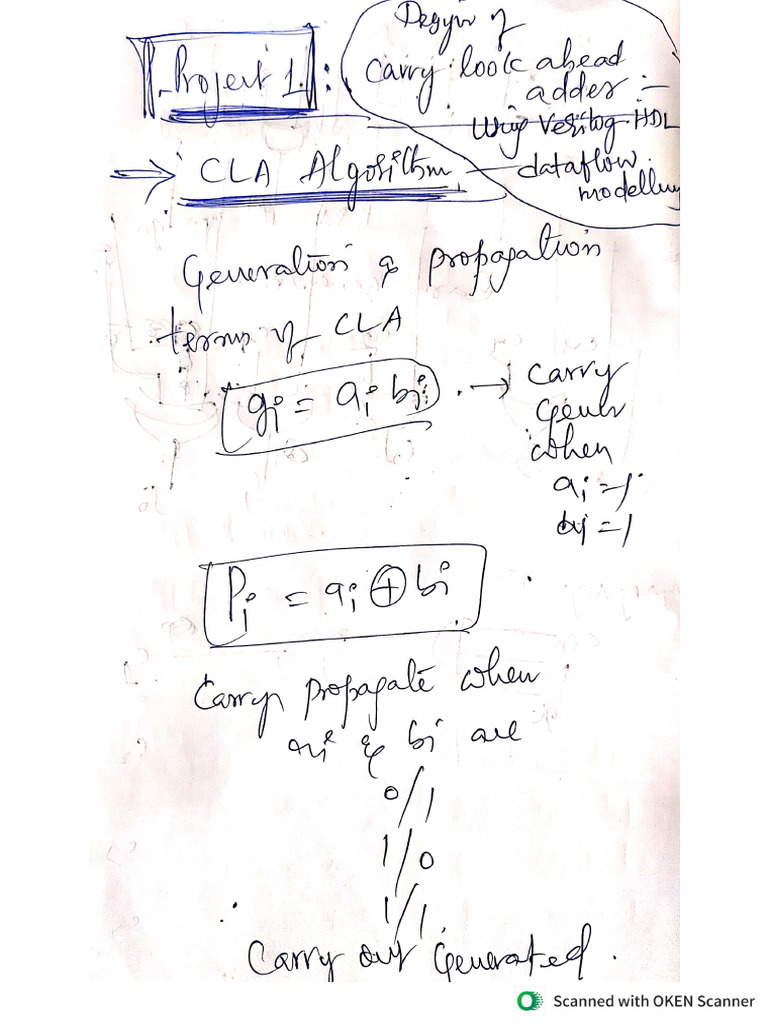 Project 1 :
Design of
Carry look ahead
adder :-
Using Verilog HDL
dataflow
modelling
⇒ CLA Algorithm
Generation & propagation
terms of CLA
gi = ai bi → carry
gener
when
ai = 1
bi = 1
Pi = ai ⊕ bi
Carry propagate when
ai & bi are
0/1
1/0
1/1
Carry out generated.
Scanned with OKEN Scanner